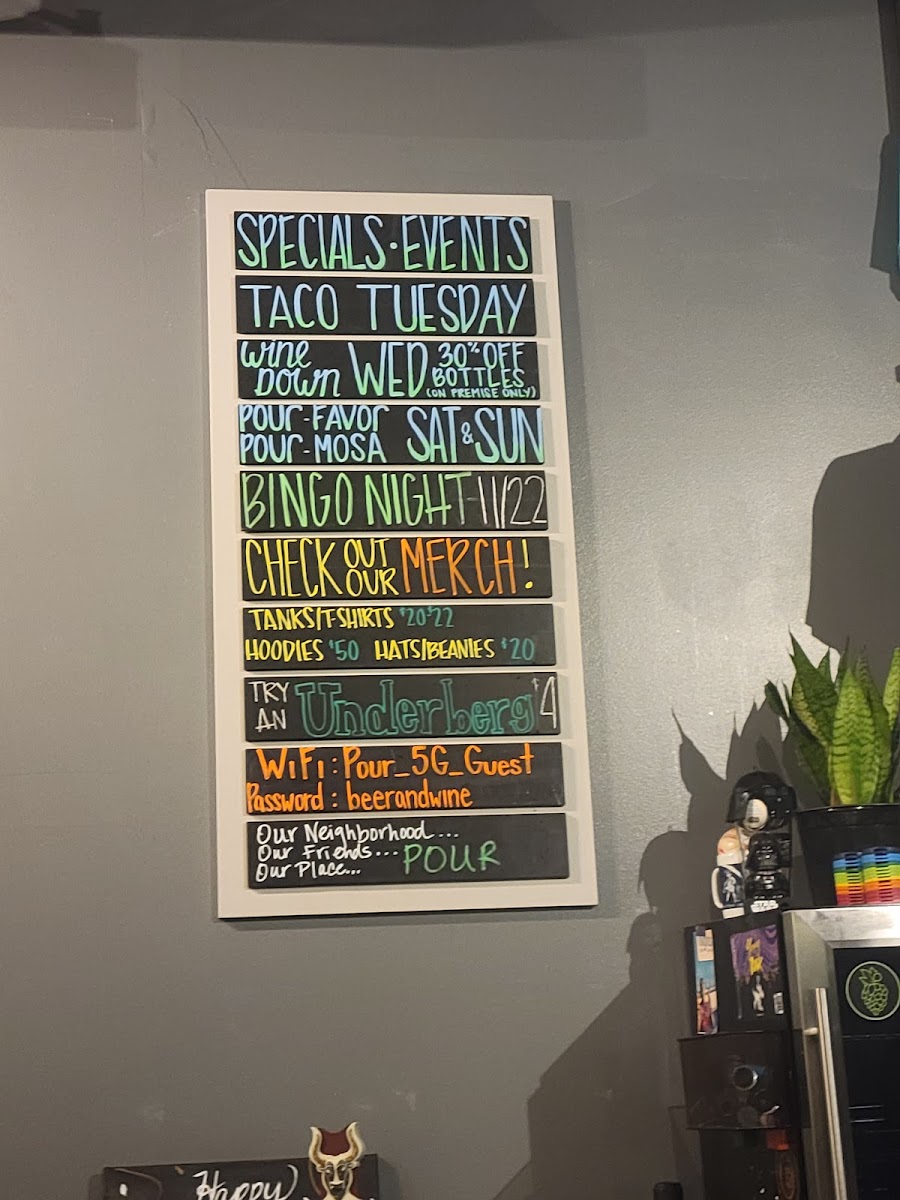 SPECIALS · EVENTS
TACO TUESDAY
wine down WED 30% OFF BOTTLES (ON PREMISE ONLY)
POUR-FAVOR
POUR-MOSA SAT & SUN
BINGO NIGHT - 11/22
CHECK OUT OUR MERCH!
TANKS/T-SHIRTS $20-$22
HOODIES $50 HATS/BEANIES $20
TRY AN Underberg $4
WiFi: Pour_5G_Guest
Password: beerandwine
Our Neighborhood...
Our Friends...
Our Place... POUR
Happy